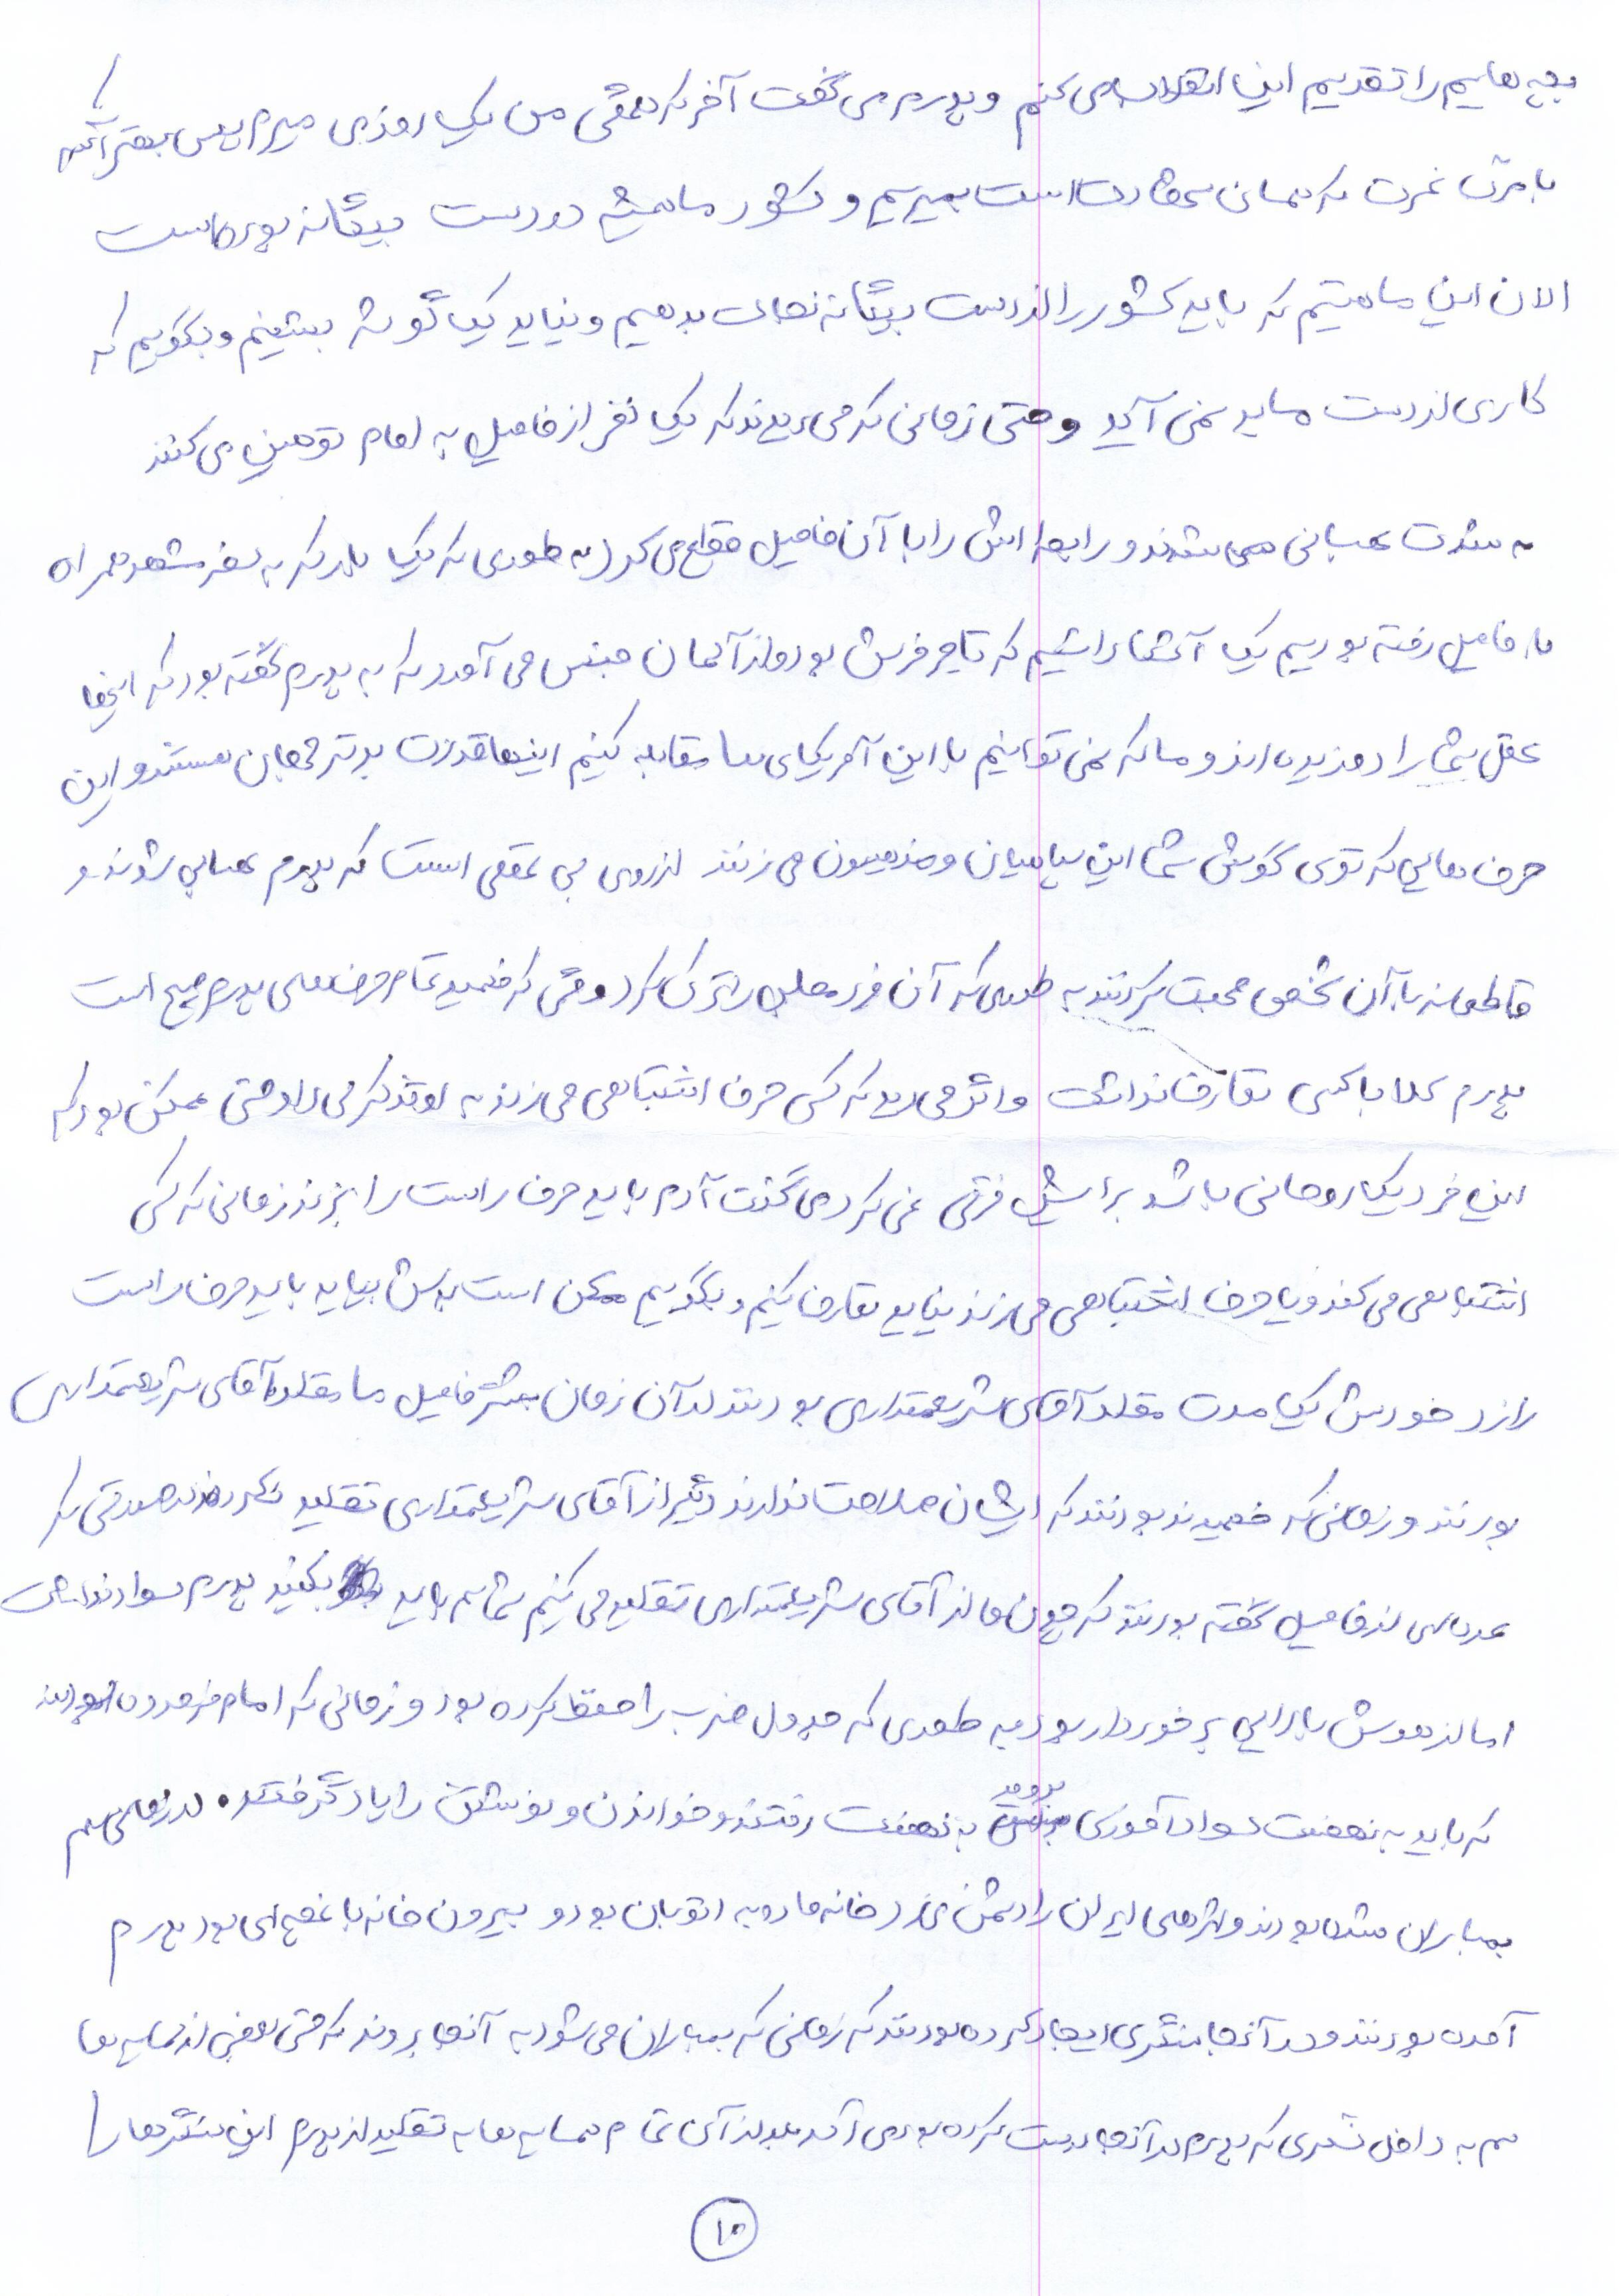 بچه هایم را تقدیم این انقلاب می کنم و پدرم می گفت آخر که همگی من یک روزی میرم پس بهتر آنکه
با مرگ عزت که همان شهادت است بمیریم و کشور ما همیشه در دست بیگانه بوده است
الان این ما هستیم که باید کشور را از دست بیگانه نجات بدهیم و نباید یک گوشه بنشینم و بگوییم که
کاری از دست ما بر نمی آید و حتی زمانی که می دیدند که یک نفر از فامیل به امام توهین می کنند
به شدت عصبانی می شدند و رابطه اش را با آن فامیل قطع می کرد (به طوری که یک بار که به سفر مشهد همراه
با فامیل رفته بودیم یک آشنا داشتیم که تاجر فرش بود و از آلمان جنس می آورد که به پدرم گفته بود که اینها
عقل شما را دزدیده اند و ما که نمی توانیم با این آمریکای مقابله کنیم اینها قدرت برتر جهان هستند و این
حرف هایی که توی گوش شما این سپاهیان و مذهبیون می زنند از روی بی عقلی است که پدرم عصبانی شدند و
قاطعانه با آن شخص صحبت کردند به طوری که آن فرد محل را ترک کرد و وقتی که فهمید تمام حرف های پدرم صحیح است
پدرم کلا با کسی تعارف نداشت و اگر می دید که کسی حرف اشتباهی می زند به او تذکر می داد حتی ممکن بود که
این فرد یک روحانی باشد برایش فرقی نمی کرد می گفت آدم باید حرف راست را بزند زمانی که کسی
اشتباهی می کند و یا حرف اشتباهی می زند نباید تعارف کنیم و بگوییم ممکن است بدش بیاید باید حرف راست
را زد خودش یک مدت مقلد آقای شریعتمداری بودند در آن زمان بیشتر فامیل ما مقلد آقای شریعتمداری
بودند و زمانی که فهمیده بودند که ایشان صلاحیت ندارند دیگر از آقای شریعتمداری تقلید نکردند در صورتی که
عده ای از فامیل گفته بودند که چون ما از آقای شریعتمداری تقلید می کنیم شما هم باید بکنید پدرم سواد نداشت
اما از هوش بالایی برخوردار بود به طوری که جدول ضرب را حفظ کرده بود و زمانی که امام فرموده بودند
که باید به نهضت سواد آموزی بروید به نهضت رفتند و خواندن و نوشتن را یاد گرفتند. در زمانی هم
بمباران شده بودند و شهرهای ایران را دشمن می زد خانه ما رو به اتوبان بود و بیرون خانه باغچه ای بود پدرم
آمده بودند و در آنجا سنگری ایجاد کرده بودند که زمانی که بمباران می شود به آنجا بروند که حتی بعضی از همسایه ها
هم به داخل سنگری که پدرم در آنجا درست کرده بود می آمد بعد از آن تمام همسایه ها به تقلید از پدرم این سنگرها را
۱۰